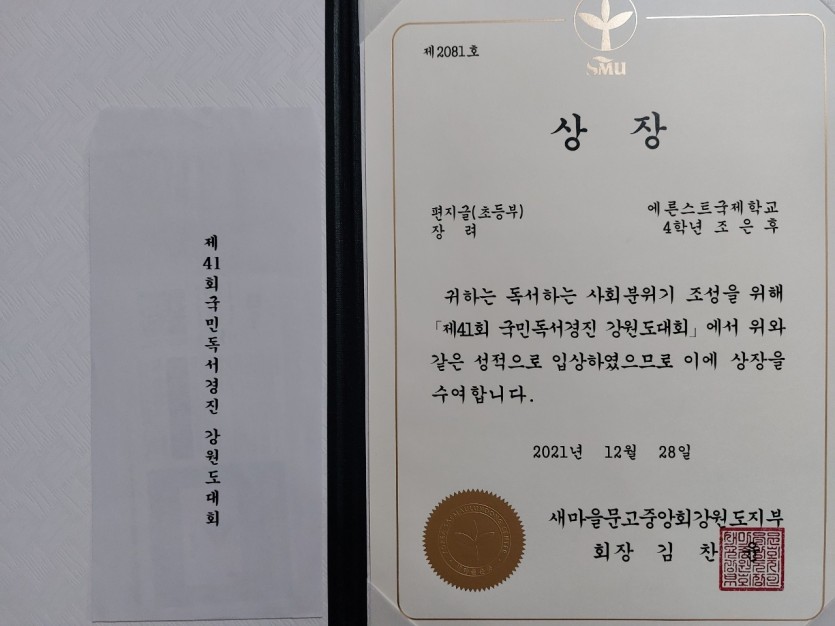 제41회국민독서경진 강원도대회
제2081호
SMU
상 장
편지글(초등부)
장 려
에른스트국제학교
4학년 조 은 후
귀하는 독서하는 사회분위기 조성을 위해
「제41회 국민독서경진 강원도대회」에서 위와
같은 성적으로 입상하였으므로 이에 상장을
수여합니다.
2021년 12월 28일
새마을문고중앙회강원도지부
회장 김 찬